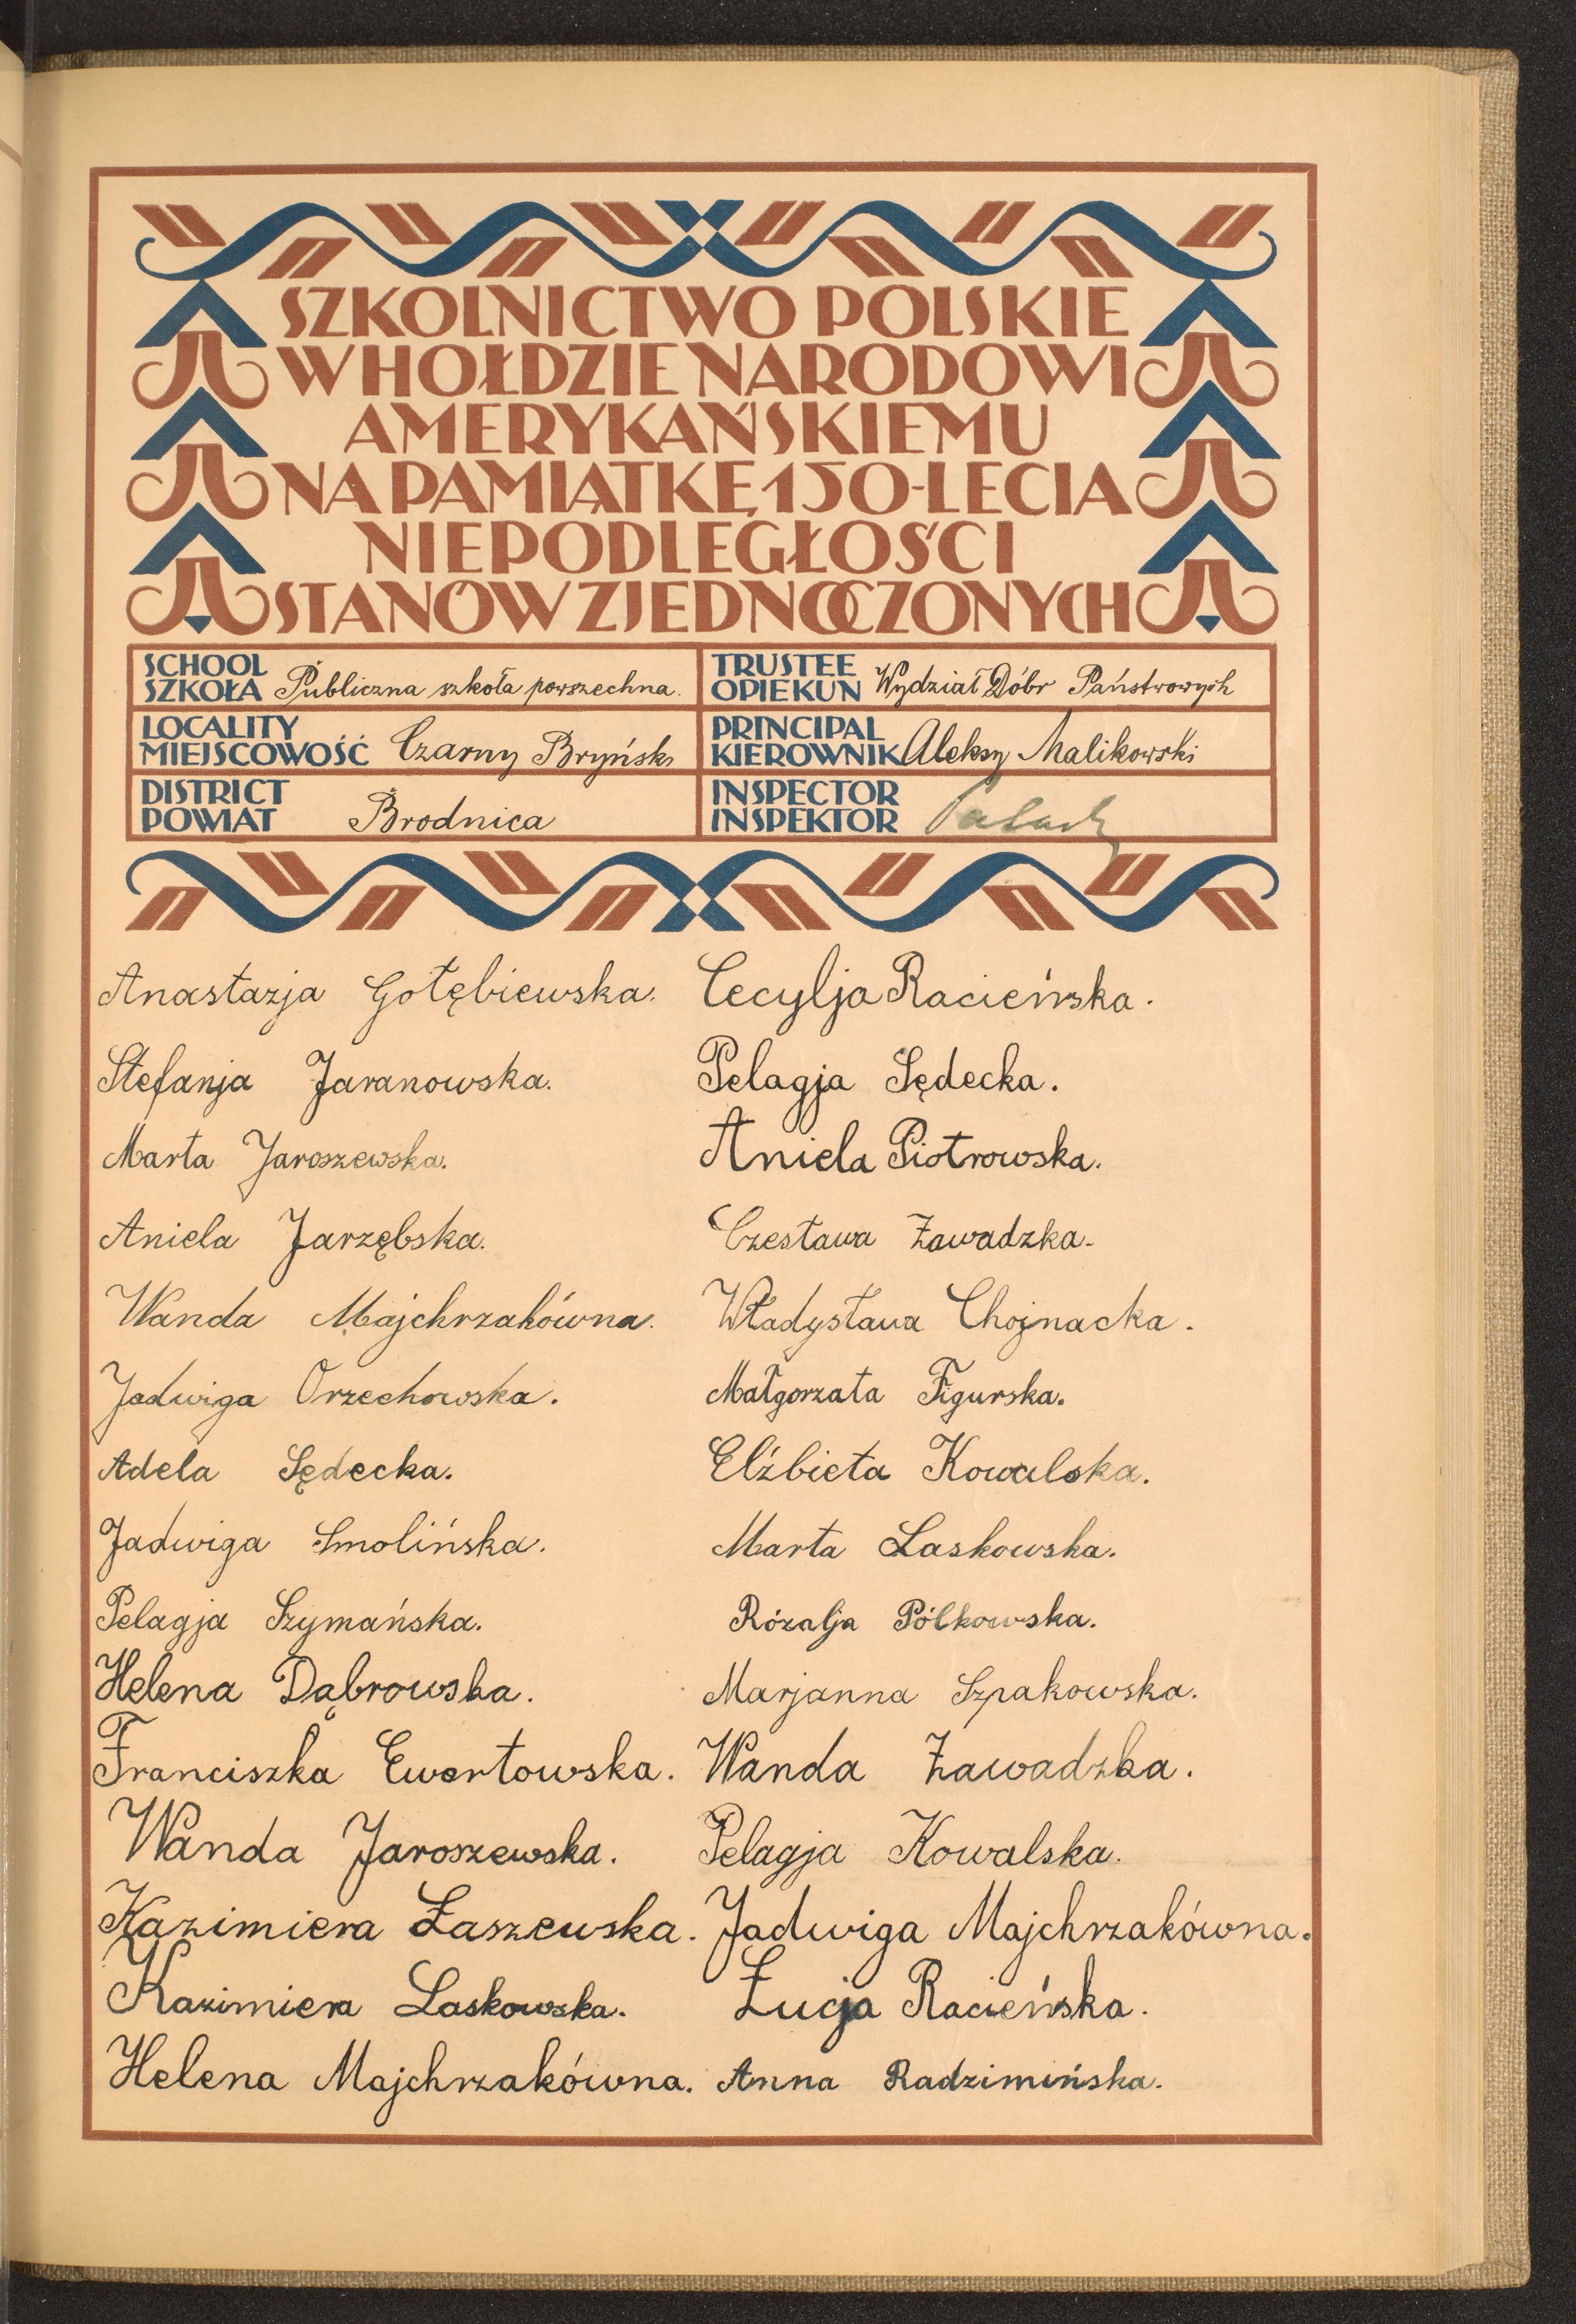 SZKOLNICTWO POLSKIE
W HOŁDZIE NARODOWI
AMERYKAŃSKIEMU
NA PAMIĄTKĘ 150-LECIA
NIEPODLEGŁOŚCI
STANÓW ZJEDNOCZONYCH
SCHOOL
SZKOŁA Publiczna szkoła powszechna.
TRUSTEE
OPIEKUN Wydział Dóbr Państwowych
LOCALITY
MIEJSCOWOŚĆ Czarny Bryńsk
PRINCIPAL
KIEROWNIK Aleksy Malikowski
DISTRICT
POWIAT Brodnica
INSPECTOR
INSPEKTOR
Anastazja Gołębiewska.
Stefanja Jaranowska.
Marta Jaroszewska.
Aniela Jarzębska.
Wanda Majchrzakówna.
Jadwiga Orzechowska.
Adela Sędecka.
Jadwiga Smolińska.
Pelagja Szymańska.
Helena Dąbrowska.
Franciszka Ewertowska.
Wanda Jaroszewska.
Kazimiera Łaszewska.
Kazimiera Laskowska.
Helena Majchrzakówna.
Cecylja Racieńska.
Pelagja Sędecka.
Aniela Piotrowska.
Czesława Zawadzka.
Władysława Chojnacka.
Małgorzata Figurska.
Elżbieta Kowalska.
Marta Laskowska.
Rózalja Pólkowska.
Marjanna Szpakowska.
Wanda Zawadzka.
Pelagja Kowalska.
Jadwiga Majchrzakówna.
Łucja Racieńska.
Anna Radzimińska.